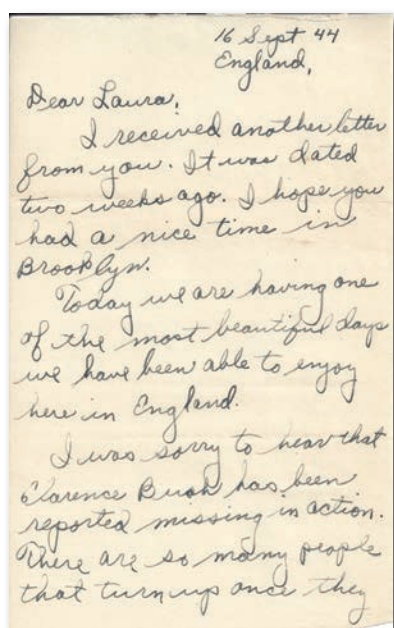 16 Sept 44
England,
Dear Laura,
I received another letter
from you. It was dated
two weeks ago. I hope you
had a nice time in
Brooklyn.
Today we are having one
of the most beautiful days
we have been able to enjoy
here in England.
I was sorry to hear that
Clarence Bush has been
reported missing in action.
There are so many people
that turn up once they